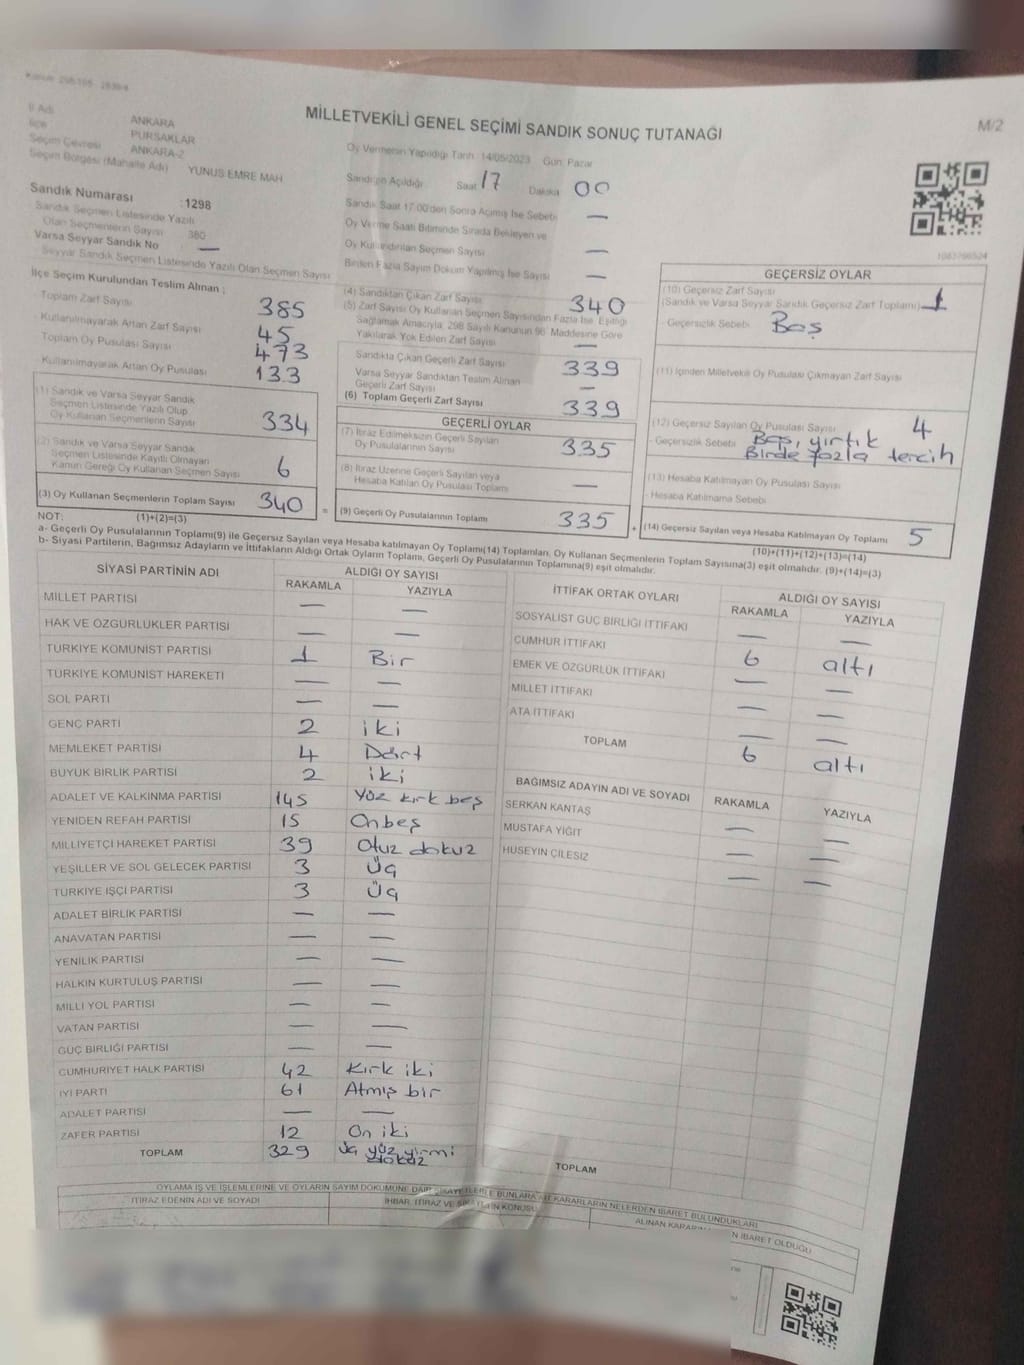 MİLLETVEKİLİ GENEL SEÇİMİ SANDIK SONUÇ TUTANAĞI
M/2
İl Adı ANKARA
İlçe PURSAKLAR
Seçim Çevresi ANKARA-2
Seçim Bölgesi (Mahalle Adı) YUNUS EMRE MAH
Sandık Numarası :1298
Sandık Seçmen Listesinde Yazılı
Olan Seçmenlerin Sayısı 380
Varsa Seyyar Sandık No —
Seyyar Sandık Seçmen Listesinde Yazılı Olan Seçmen Sayısı
Oy Vermenin Yapıldığı Tarih : 14/05/2023 Gün: Pazar
Sandığın Açıldığı Saat 17 Dakika 00
Sandık Saat 17:00'den Sonra Açılmış İse Sebebi —
Oy Verme Saati Bitiminde Sırada Bekleyen ve
Oy Kullandırılan Seçmen Sayısı —
Birden Fazla Sayım Döküm Yapılmış İse Sayısı —
İlçe Seçim Kurulundan Teslim Alınan :
Toplam Zarf Sayısı 385
Kullanılmayarak Artan Zarf Sayısı 45
Toplam Oy Pusulası Sayısı 473
Kullanılmayarak Artan Oy Pusulası 133
(1) Sandık ve Varsa Seyyar Sandık
Seçmen Listesinde Yazılı Olup
Oy Kullanan Seçmenlerin Sayısı 334
(2) Sandık ve Varsa Seyyar Sandık
Seçmen Listesinde Kayıtlı Olmayan
Kanun Gereği Oy Kullanan Seçmen Sayısı 6
(3) Oy Kullanan Seçmenlerin Toplam Sayısı 340
(4) Sandıktan Çıkan Zarf Sayısı 340
(5) Zarf Sayısı Oy Kullanan Seçmen Sayısından Fazla İse, Eşitliği
Sağlamak Amacıyla; 298 Sayılı Kanunun 98. Maddesine Göre
Yakılarak Yok Edilen Zarf Sayısı —
Sandıkta Çıkan Geçerli Zarf Sayısı 339
Varsa Seyyar Sandıktan Teslim Alınan
Geçerli Zarf Sayısı —
(6) Toplam Geçerli Zarf Sayısı 339
GEÇERLİ OYLAR
(7) İtiraz Edilmeksizin Geçerli Sayılan
Oy Pusulalarının Sayısı 335
(8) İtiraz Üzerine Geçerli Sayılan veya
Hesaba Katılan Oy Pusulası Toplamı —
= (9) Geçerli Oy Pusulalarının Toplamı 335
GEÇERSİZ OYLAR
(10) Geçersiz Zarf Sayısı
(Sandık ve Varsa Seyyar Sandık Geçersiz Zarf Toplamı) 1
- Geçersizlik Sebebi Boş
(11) İçinden Milletvekili Oy Pusulası Çıkmayan Zarf Sayısı
(12) Geçersiz Sayılan Oy Pusulası Sayısı 4
- Geçersizlik Sebebi Boş, yırtık
Birde fazla tercih
(13) Hesaba Katılmayan Oy Pusulası Sayısı
- Hesaba Katılmama Sebebi
+ (14) Geçersiz Sayılan veya Hesaba Katılmayan Oy Toplamı 5
NOT: (1)+(2)=(3)
(10)+(11)+(12)+(13)=(14)
a- Geçerli Oy Pusulalarının Toplamı(9) ile Geçersiz Sayılan veya Hesaba katılmayan Oy Toplamı(14) Toplamları, Oy Kullanan Seçmenlerin Toplam Sayısına(3) eşit olmalıdır. (9)+(14)=(3)
b- Siyasi Partilerin, Bağımsız Adayların ve İttifakların Aldığı Ortak Oyların Toplamı, Geçerli Oy Pusulalarının Toplamına(9) eşit olmalıdır.
SİYASİ PARTİNİN ADI ALDIĞI OY SAYISI
RAKAMLA YAZIYLA
MİLLET PARTİSİ — —
HAK VE ÖZGÜRLÜKLER PARTİSİ — —
TÜRKİYE KOMÜNİST PARTİSİ 1 Bir
TÜRKİYE KOMÜNİST HAREKETİ — —
SOL PARTİ — —
GENÇ PARTİ 2 iki
MEMLEKET PARTİSİ 4 Dört
BÜYÜK BİRLİK PARTİSİ 2 iki
ADALET VE KALKINMA PARTİSİ 145 Yüz kırk beş
YENİDEN REFAH PARTİSİ 15 Onbeş
MİLLİYETÇİ HAREKET PARTİSİ 39 Otuz dokuz
YEŞİLLER VE SOL GELECEK PARTİSİ 3 Üç
TÜRKİYE İŞÇİ PARTİSİ 3 Üç
ADALET BİRLİK PARTİSİ — —
ANAVATAN PARTİSİ — —
YENİLİK PARTİSİ — —
HALKIN KURTULUŞ PARTİSİ — —
MİLLİ YOL PARTİSİ — —
VATAN PARTİSİ — —
GÜÇ BİRLİĞİ PARTİSİ — —
CUMHURİYET HALK PARTİSİ 42 Kırk iki
İYİ PARTİ 61 Atmış bir
ADALET PARTİSİ — —
ZAFER PARTİSİ 12 On iki
TOPLAM 329 Üç yüz yirmi
dokuz
İTTİFAK ORTAK OYLARI ALDIĞI OY SAYISI
RAKAMLA YAZIYLA
SOSYALİST GÜÇ BİRLİĞİ İTTİFAKI — —
CUMHUR İTTİFAKI 6 altı
EMEK VE ÖZGÜRLÜK İTTİFAKI — —
MİLLET İTTİFAKI — —
ATA İTTİFAKI — —
TOPLAM 6 altı
BAĞIMSIZ ADAYIN ADI VE SOYADI RAKAMLA YAZIYLA
SERKAN KANTAŞ — —
MUSTAFA YİĞİT — —
HÜSEYİN ÇİLESİZ — —
TOPLAM
OYLAMA İŞ VE İŞLEMLERİNE VE OYLARIN SAYIM DÖKÜMÜNE DAİR ŞİKAYETLERLE BUNLARA AİT KARARLARIN NELERDEN İBARET BULUNDUKLARI
İTİRAZ EDENİN ADI VE SOYADI
İHBAR, İTİRAZ VE ŞİKAYETİN KONUSU
ALINAN KARARIN
N İBARET OLDUĞU